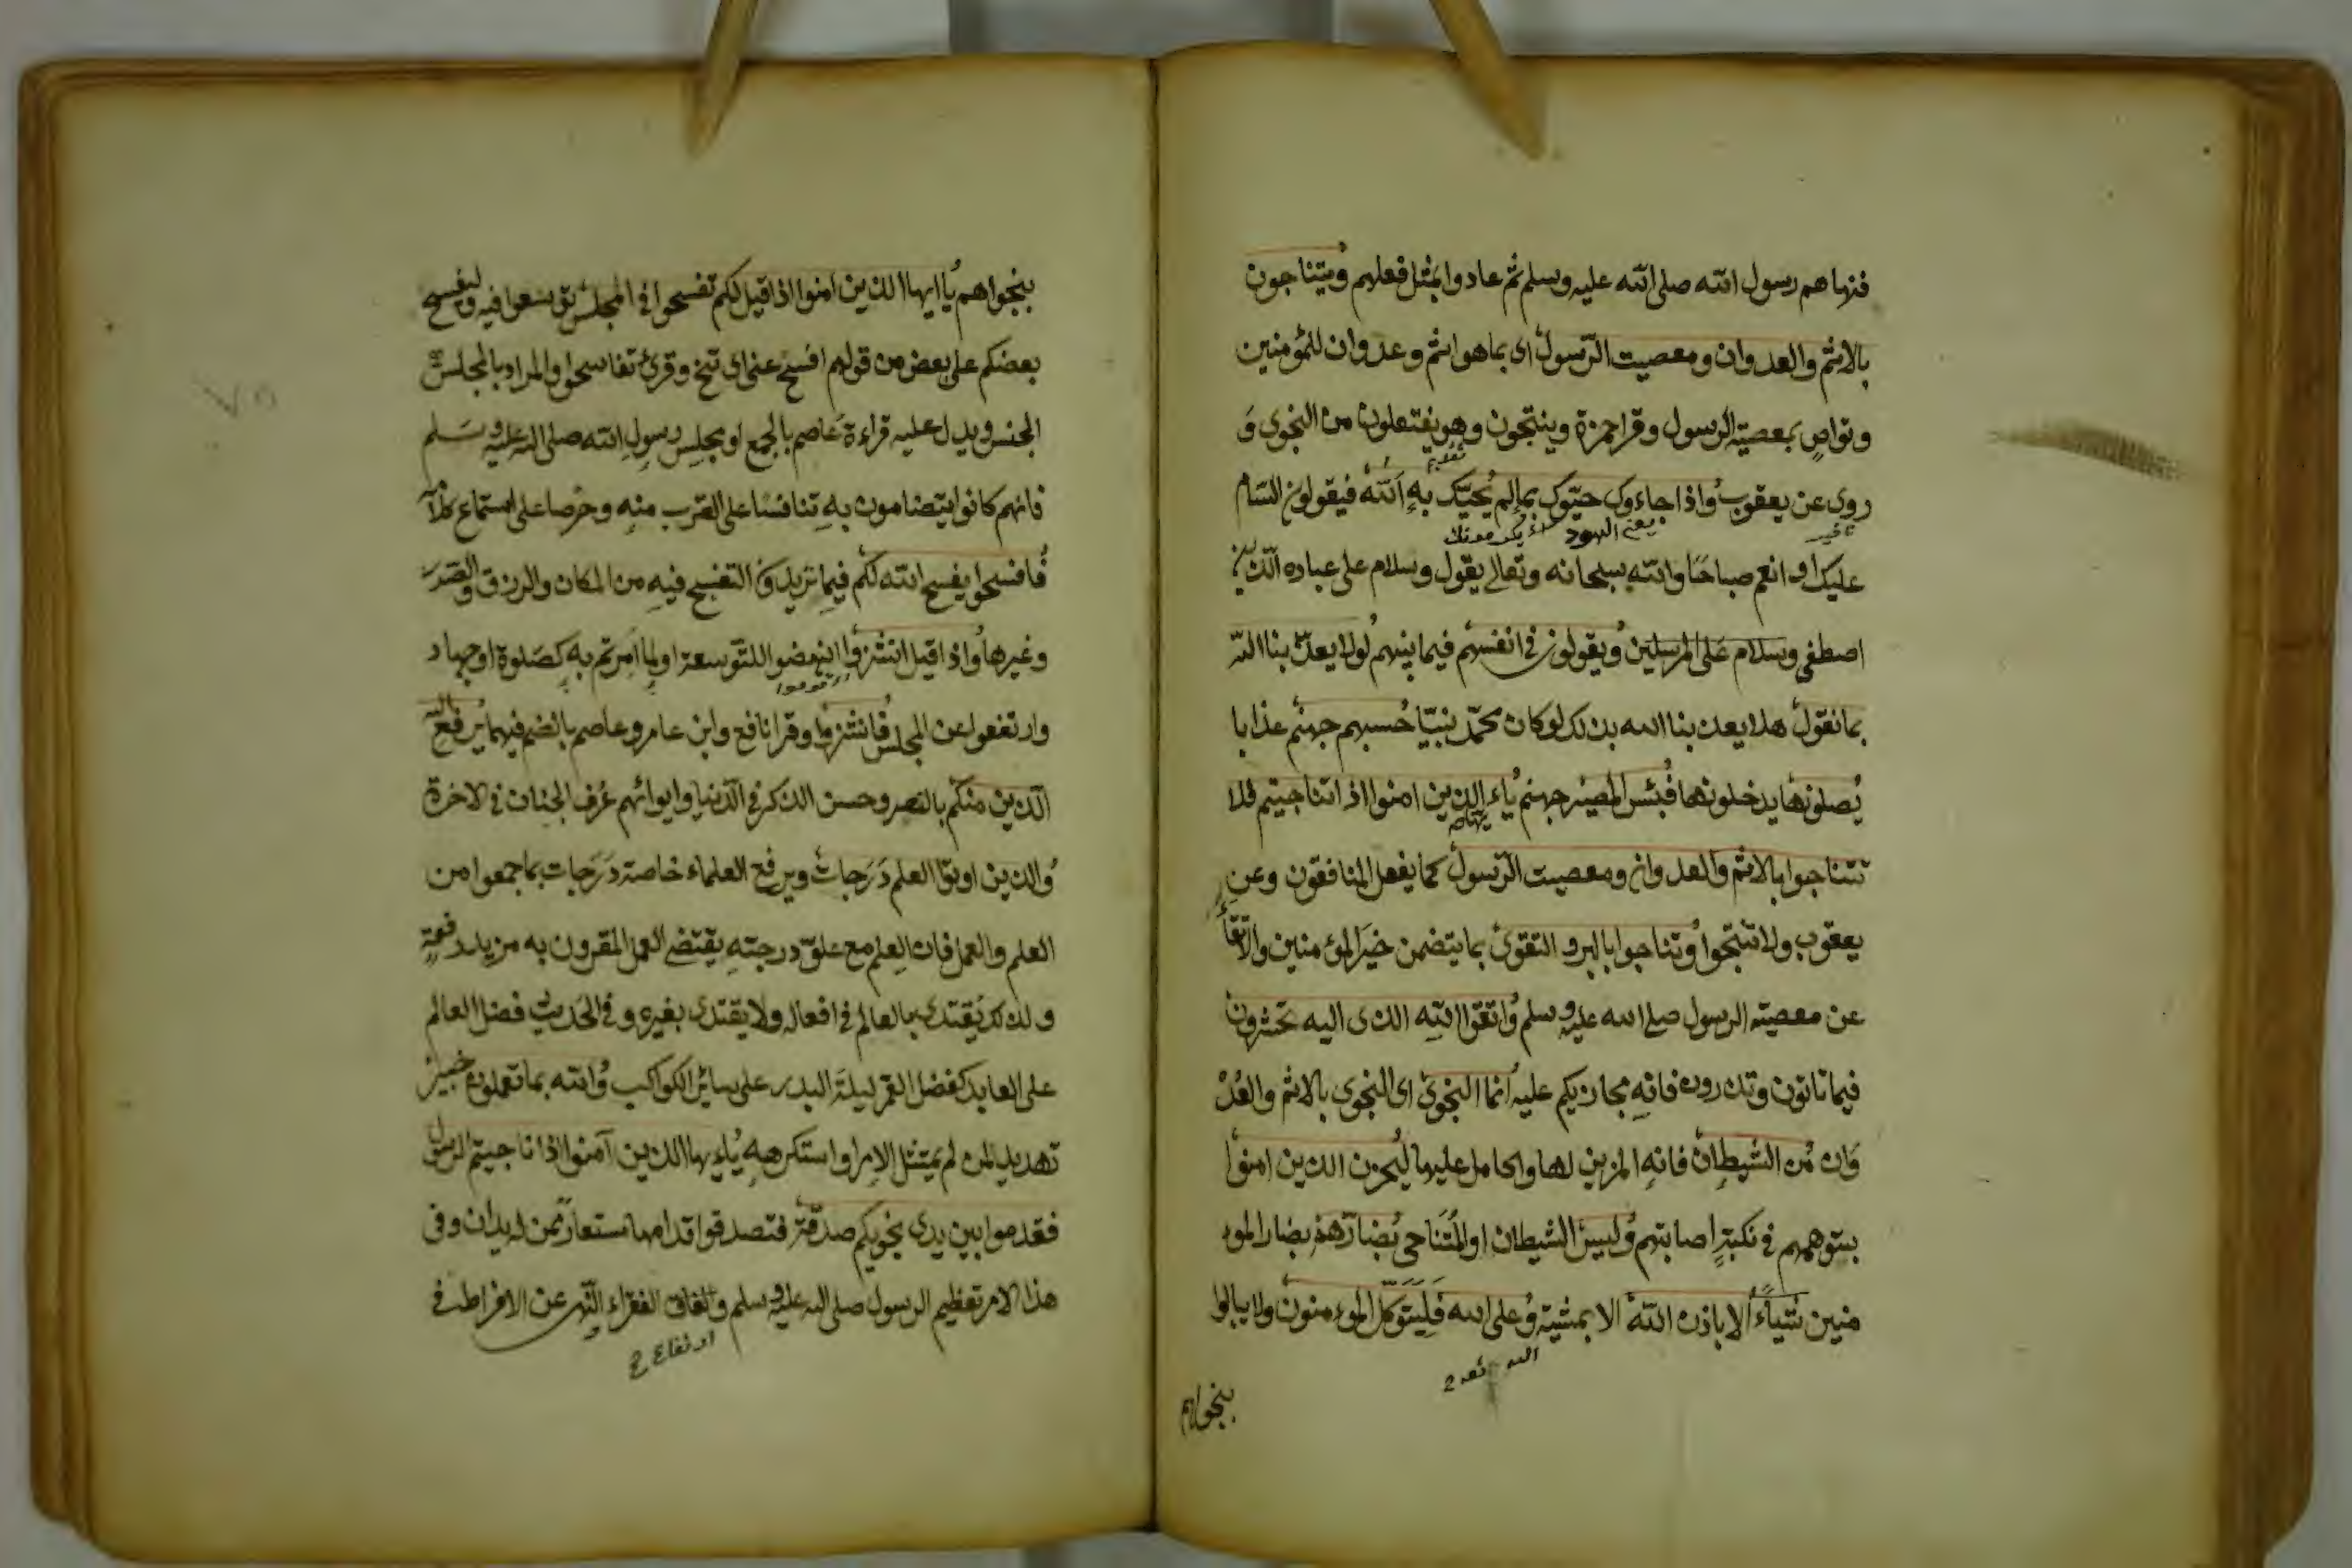 فنهاهم رسول الله صلى الله عليه وسلم ثم عادوا بمثل فعلهم ويتناجون
بالاثم والعدوان ومعصيت الرسول اى بما هو اثم وعدوان للمؤمنين
وتواص بمعصية الرسول وقرا حمزة وينتجون وهو يفتعلون من النجوى و
روى عن يعقوب واذا جاءوك حيوك بما لم يحيك به الله فيقولون السام
يعنى اليهود
عليك او انعم صباحا والله سبحانه وتعالى يقول وسلام على عباده الذين
اصطفى وسلام على المرسلين ويقولون فى انفسهم فيما بينهم لولا يعذبنا الله
بما نقول هلا يعذبنا الله بذلك لو كان محمد نبيا حسبهم جهنم عذابا
يصلونها يدخلونها فبئس المصير جهنم ياء الذين امنوا اذا تناجيتم فلا
يهاء
تتناجوا بالاثم والعدوان ومعصيت الرسول كما يفعل المنافقون وعن
يعقوب ولا تنتجوا وتناجوا بالبر والتقوى بما يتضمن خير المؤمنين والاتقاء
عن معصية الرسول صلى الله عليه وسلم واتقوا الله الذى اليه تحشرون
فيما تاتون وتذرون فانه مجازيكم عليه انما النجوى اى النجوى بالاثم والعد
وان من الشيطان فانه المزين لها والحامل عليها ليحزن الذين امنوا
بتوهمهم فى نكبة اصابتهم وليس الشيطان او المتناجى بضارهم بضار المؤ
منين شيأ الا باذن الله الا بمشيته وعلى الله فليتوكل المؤمنون ولا يبالوا
بنجواهم
بنجواهم يا ايها الذين امنوا اذا قيل لكم تفسحوا فى المجلس توسعوا فيه وليفسح
بعضكم على بعض من قولهم افسح عنى اى تنح وقرئ تفاسحوا والمراد بالمجلس
الجنس ويدل عليه قراءة عاصم بالجمع او مجلس رسول الله صلى الله عليه وسلم
فانهم كانوا يتضامون به تنافسا على القرب منه وحرصا على استماع كلامه
فافسحوا يفسح الله لكم فيما تريدون التفسح فيه من المكان والرزق والصدر
وغيرها واذا قيل انشزوا انهضوا للتوسعة او لما امرتم به كصلوة او جهاد
قوموا
وارتفعوا عن المجلس فانشزوا وقرا نافع وابن عامر وعاصم بالضم فيهما يرفع الله
الذين منكم بالنصر وحسن الذكر فى الدنيا وايوائهم غرف الجنان فى الاخرة
والذين اوتوا العلم درجات ويرفع العلماء خاصة درجات بما جمعوا من
العلم والعمل فان العلم مع علو درجته يقتضى العمل المقرون به مزيد رفعة
ولذلك يقتدى بالعالم فى افعاله ولا يقتدى بغيره وفى الحديث فضل العالم
على العابد كفضل القمر ليلة البدر على سائر الكواكب والله بما تعملون خبير
تهديد لمن لم يمتثل الامر او استكرهه ياءيها الذين آمنوا اذا ناجيتم الرسول
فقدموا بين يدى نجويكم صدقة فتصدقوا قدامها مستعار ممن له يدان وفى
هذا الامر تعظيم الرسول صلى الله عليه وسلم وانفاق الفقراء والنهى عن الافراط فى